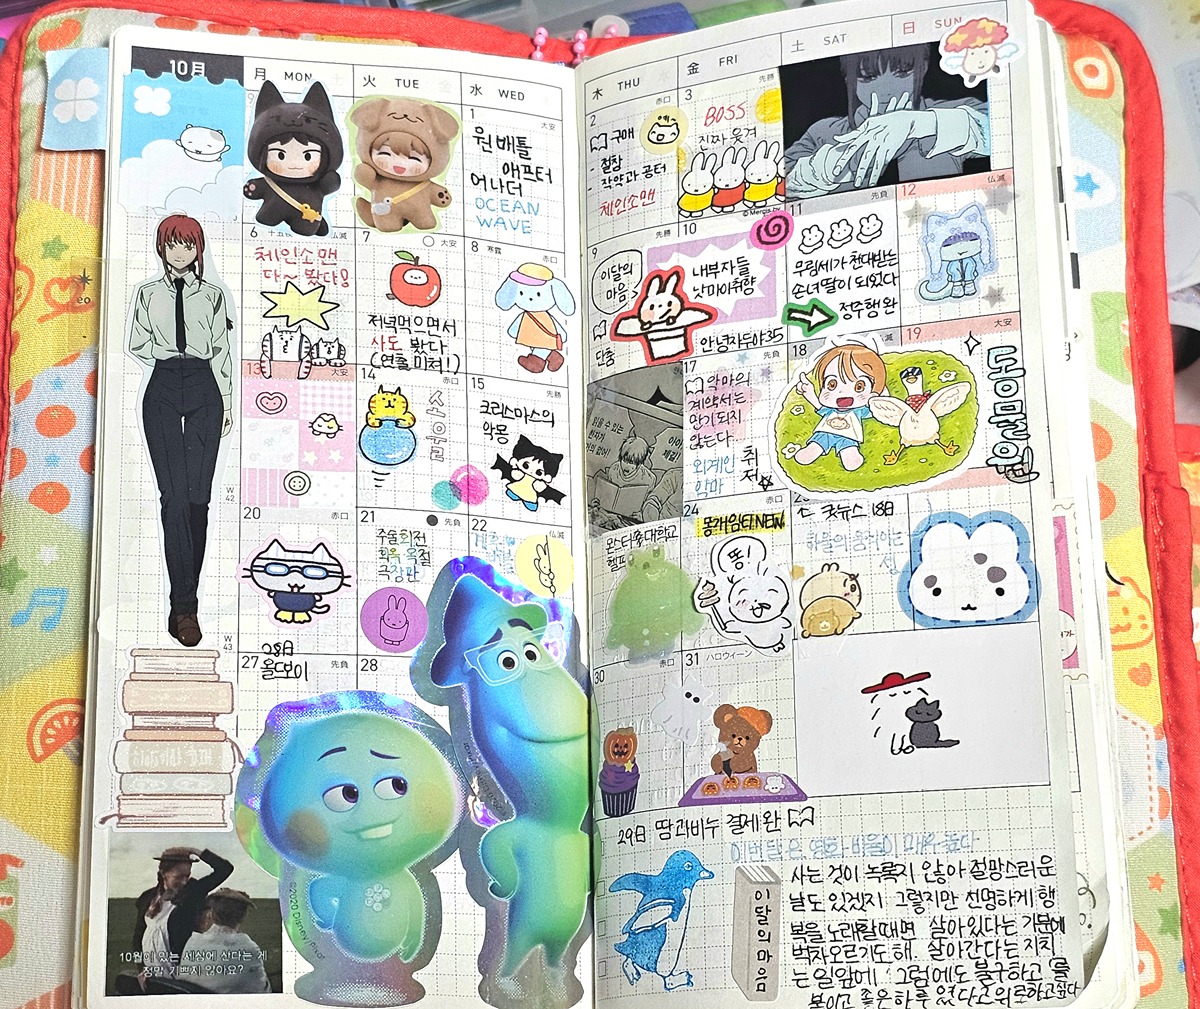 10月
月 MON
火 TUE
水 WED
木 THU
金 FRI
土 SAT
日 SUN
1
大安
원 배틀
애프터
어나더
OCEAN
WAVE
2
赤口
구매
- 절창
- 작약과 공터
체인소맨
3
先勝
BOSS
진짜 웃겨
© Mercis bv
6
仏滅
체인소맨
다~ 봤다!
7
大安
저녁먹으면서
사도 봤다
(연출 미쳐!)
8
寒露
赤口
9
先勝
이달의
마음
단춤
10
내부자들
낫마이취향
안녕자두야35
11
先負
무림세가천대받는
소녀딸이 되었다
정주행 완
12
仏滅
13
大安
14
赤口
소
우
울
15
先勝
크리스마스의
악몽
읽을 수 있는
한자가
거의 없어!
17
先負
악마의
계약서는
만기되지
않는다
외계인
악마
취
저
18
19
大安
동물원
W
42
20
赤口
21
先負
주술회전
회옥·옥절
극장판
22
仏滅
몬스터대학교
헬프
24
몽게임티NEW
똥!
굿뉴스 18日
하울의 움직이는
성
W
43
28日
올드보이
27
先負
28
30
赤口
31
ハロウィーン
29日 땀과비누 결제 완
이번달은 영화 비율이 매우 높다
이
달
의
마
음
사는 것이 녹록지 않아 절망스러운
날도 있겠지 그렇지만 선명하게 행
복을 노래할 때면 살아있다는 기분에
벅차오르기도 해. 살아간다는 지치
는 일 앞에 '그럼에도 불구하고'를
붙이고 좋은 하루였다고 위로하고싶다
©2020 Disney/Pixar
10월이 있는 세상에 산다는 게
정말 기쁘지 않아요?